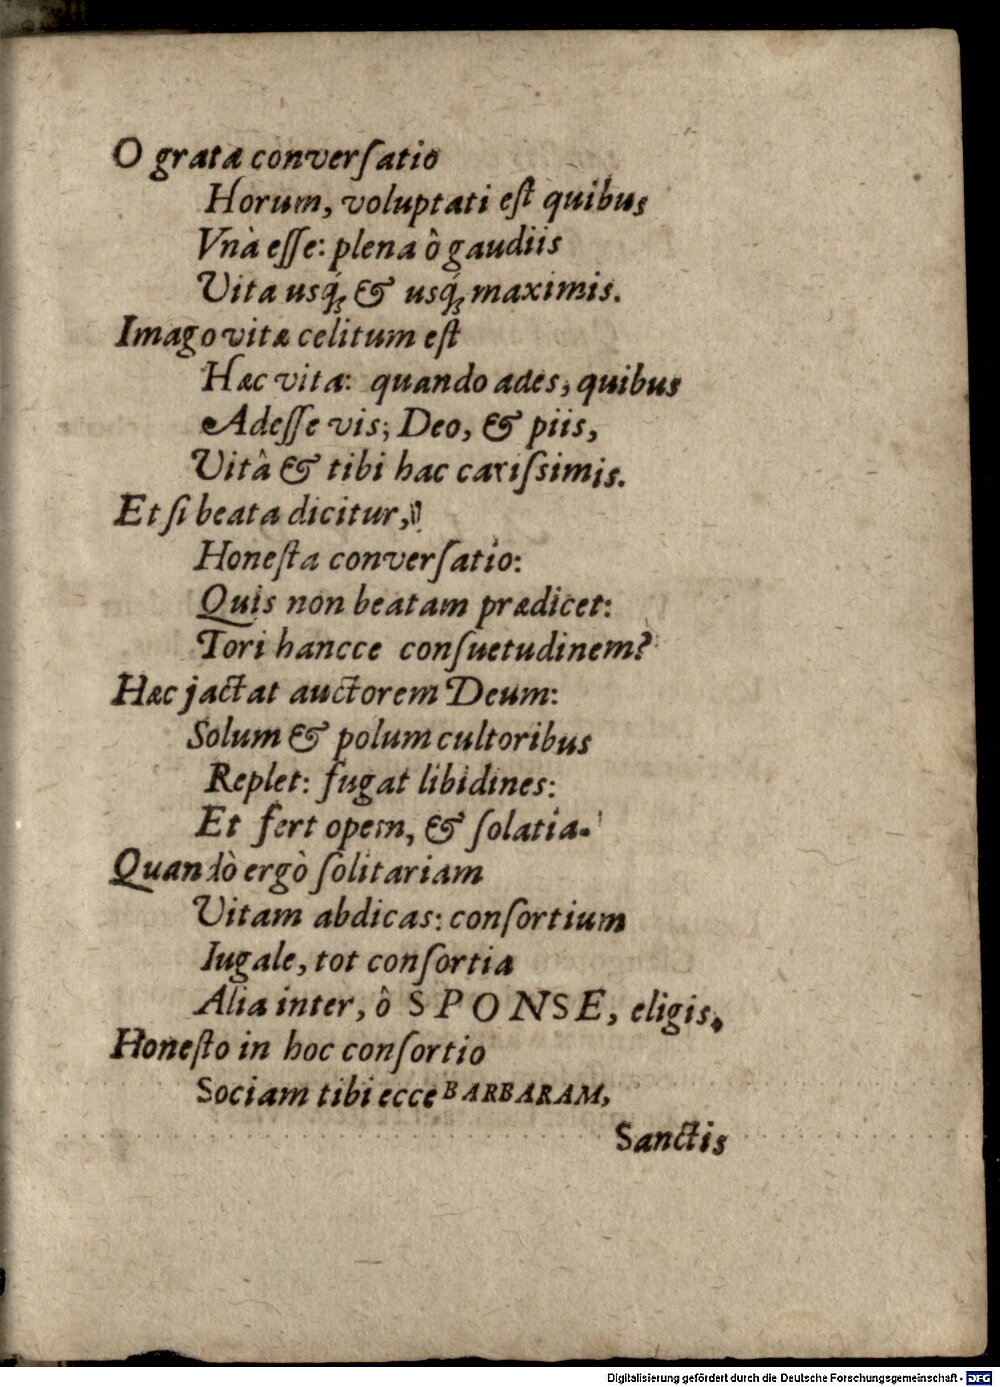 O grata converſatio
Horum, voluptati eſt quibus
Vnà eſſe: plena ô gaudiis
Vita usq́; & usq́; maximis.
Imago vitæ celitum eſt
Hæc vita: quando ades, quibus
Adeſſe vis; Deo, & piis,
Vitâ & tibi hac cariſsimis.
Et ſi beata dicitur,
Honeſta converſatio:
Quis non beatam prædicet:
Tori hancce conſuetudinem?
Hæc jactat auctorem Deum:
Solum & polum cultoribus
Replet: fugat libidines:
Et fert opem, & ſolatia.
Quandò ergò ſolitariam
Vitam abdicas: conſortium
Iugale, tot conſortia
Alia inter, ô SPONSE, eligis,
Honeſto in hoc conſortio
Sociam tibi ecce BARBARAM,
Sanctis
Digitalisierung gefördert durch die Deutsche Forschungsgemeinschaft - DFG